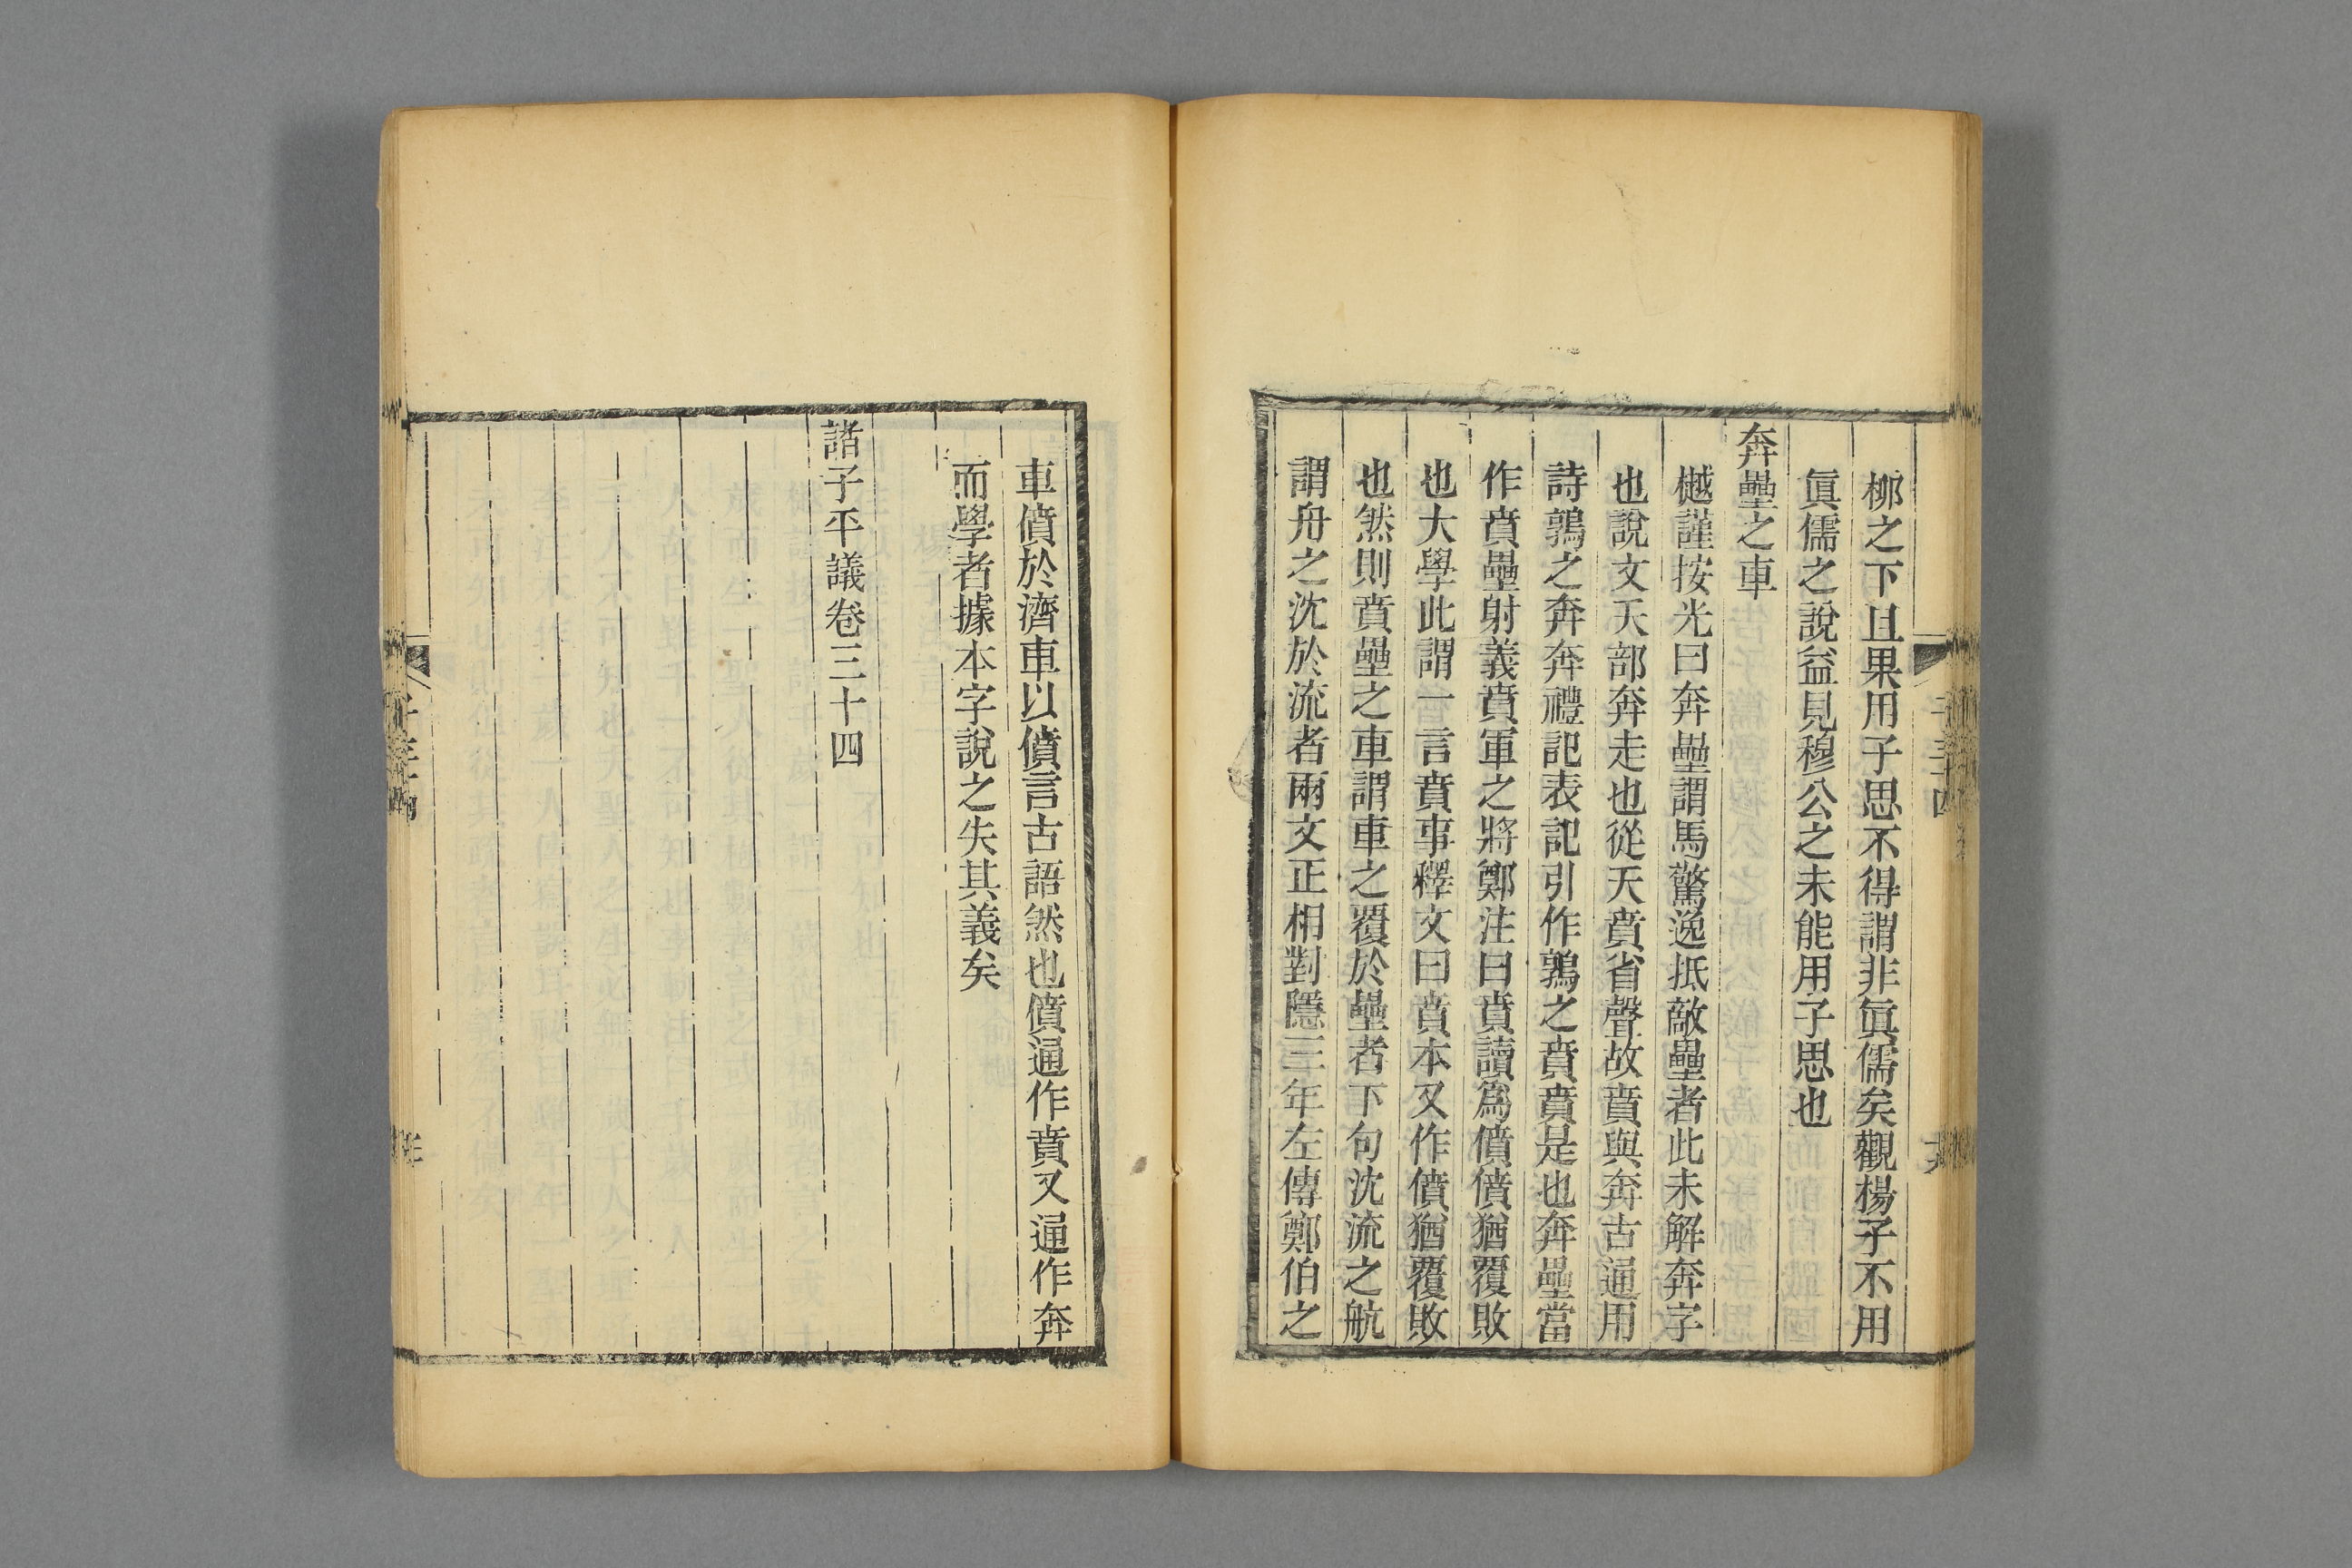 柳之下且果用子思不得謂非眞儒矣觀楊子不用
眞儒之說益見穆公之未能用子思也
奔壘之車
樾謹按光曰奔壘謂馬驚逸抵敵壘者此未解奔字
也說文夭部奔走也從夭賁省聲故賁與奔古通用
詩鶉之奔奔禮記表記引作鶉之賁賁是也奔壘當
作賁壘射義賁軍之將鄭注曰賁讀爲僨僨猶覆敗
也大學此謂一言賁事釋文曰賁本又作僨猶覆敗
也然則賁壘之車謂車之覆於壘者下句沈流之航
謂舟之沈於流者兩文正相對隱三年左傳鄭伯之
車僨於濟車以僨言古語然也僨通作賁又通作奔
而學者據本字說之失其義矣
諸子平議卷三十四